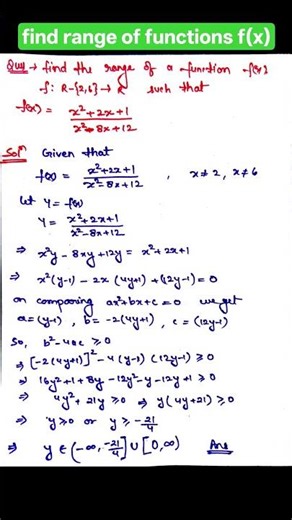 find range of functions f(x)
Que → find the range of a function f(x)
f: R-{2,6} → R such that
f(x) = x²+2x+1 / x²-8x+12
Solⁿ Given that
f(x) = x²+2x+1 / x²-8x+12 , x≠2, x≠6
let Y = f(x)
Y = x²+2x+1 / x²-8x+12
⇒ x²y - 8xy + 12y = x²+2x+1
⇒ x²(y-1) - 2x(4y+1) + (12y-1) = 0
on comparing ax²+bx+c=0 we get
a=(y-1), b=-2(4y+1), c=(12y-1)
So, b²-4ac ≥ 0
⇒ [-2(4y+1)]² - 4(y-1)(12y-1) ≥ 0
⇒ 16y²+1+8y-12y²-y-12y+1 ≥ 0
⇒ 4y²+21y ≥ 0 ⇒ y(4y+21) ≥ 0
⇒ y ≥ 0 or y ≥ -21/4
⇒ y ∈ (-∞, -21/4] ∪ [0, ∞) Ans